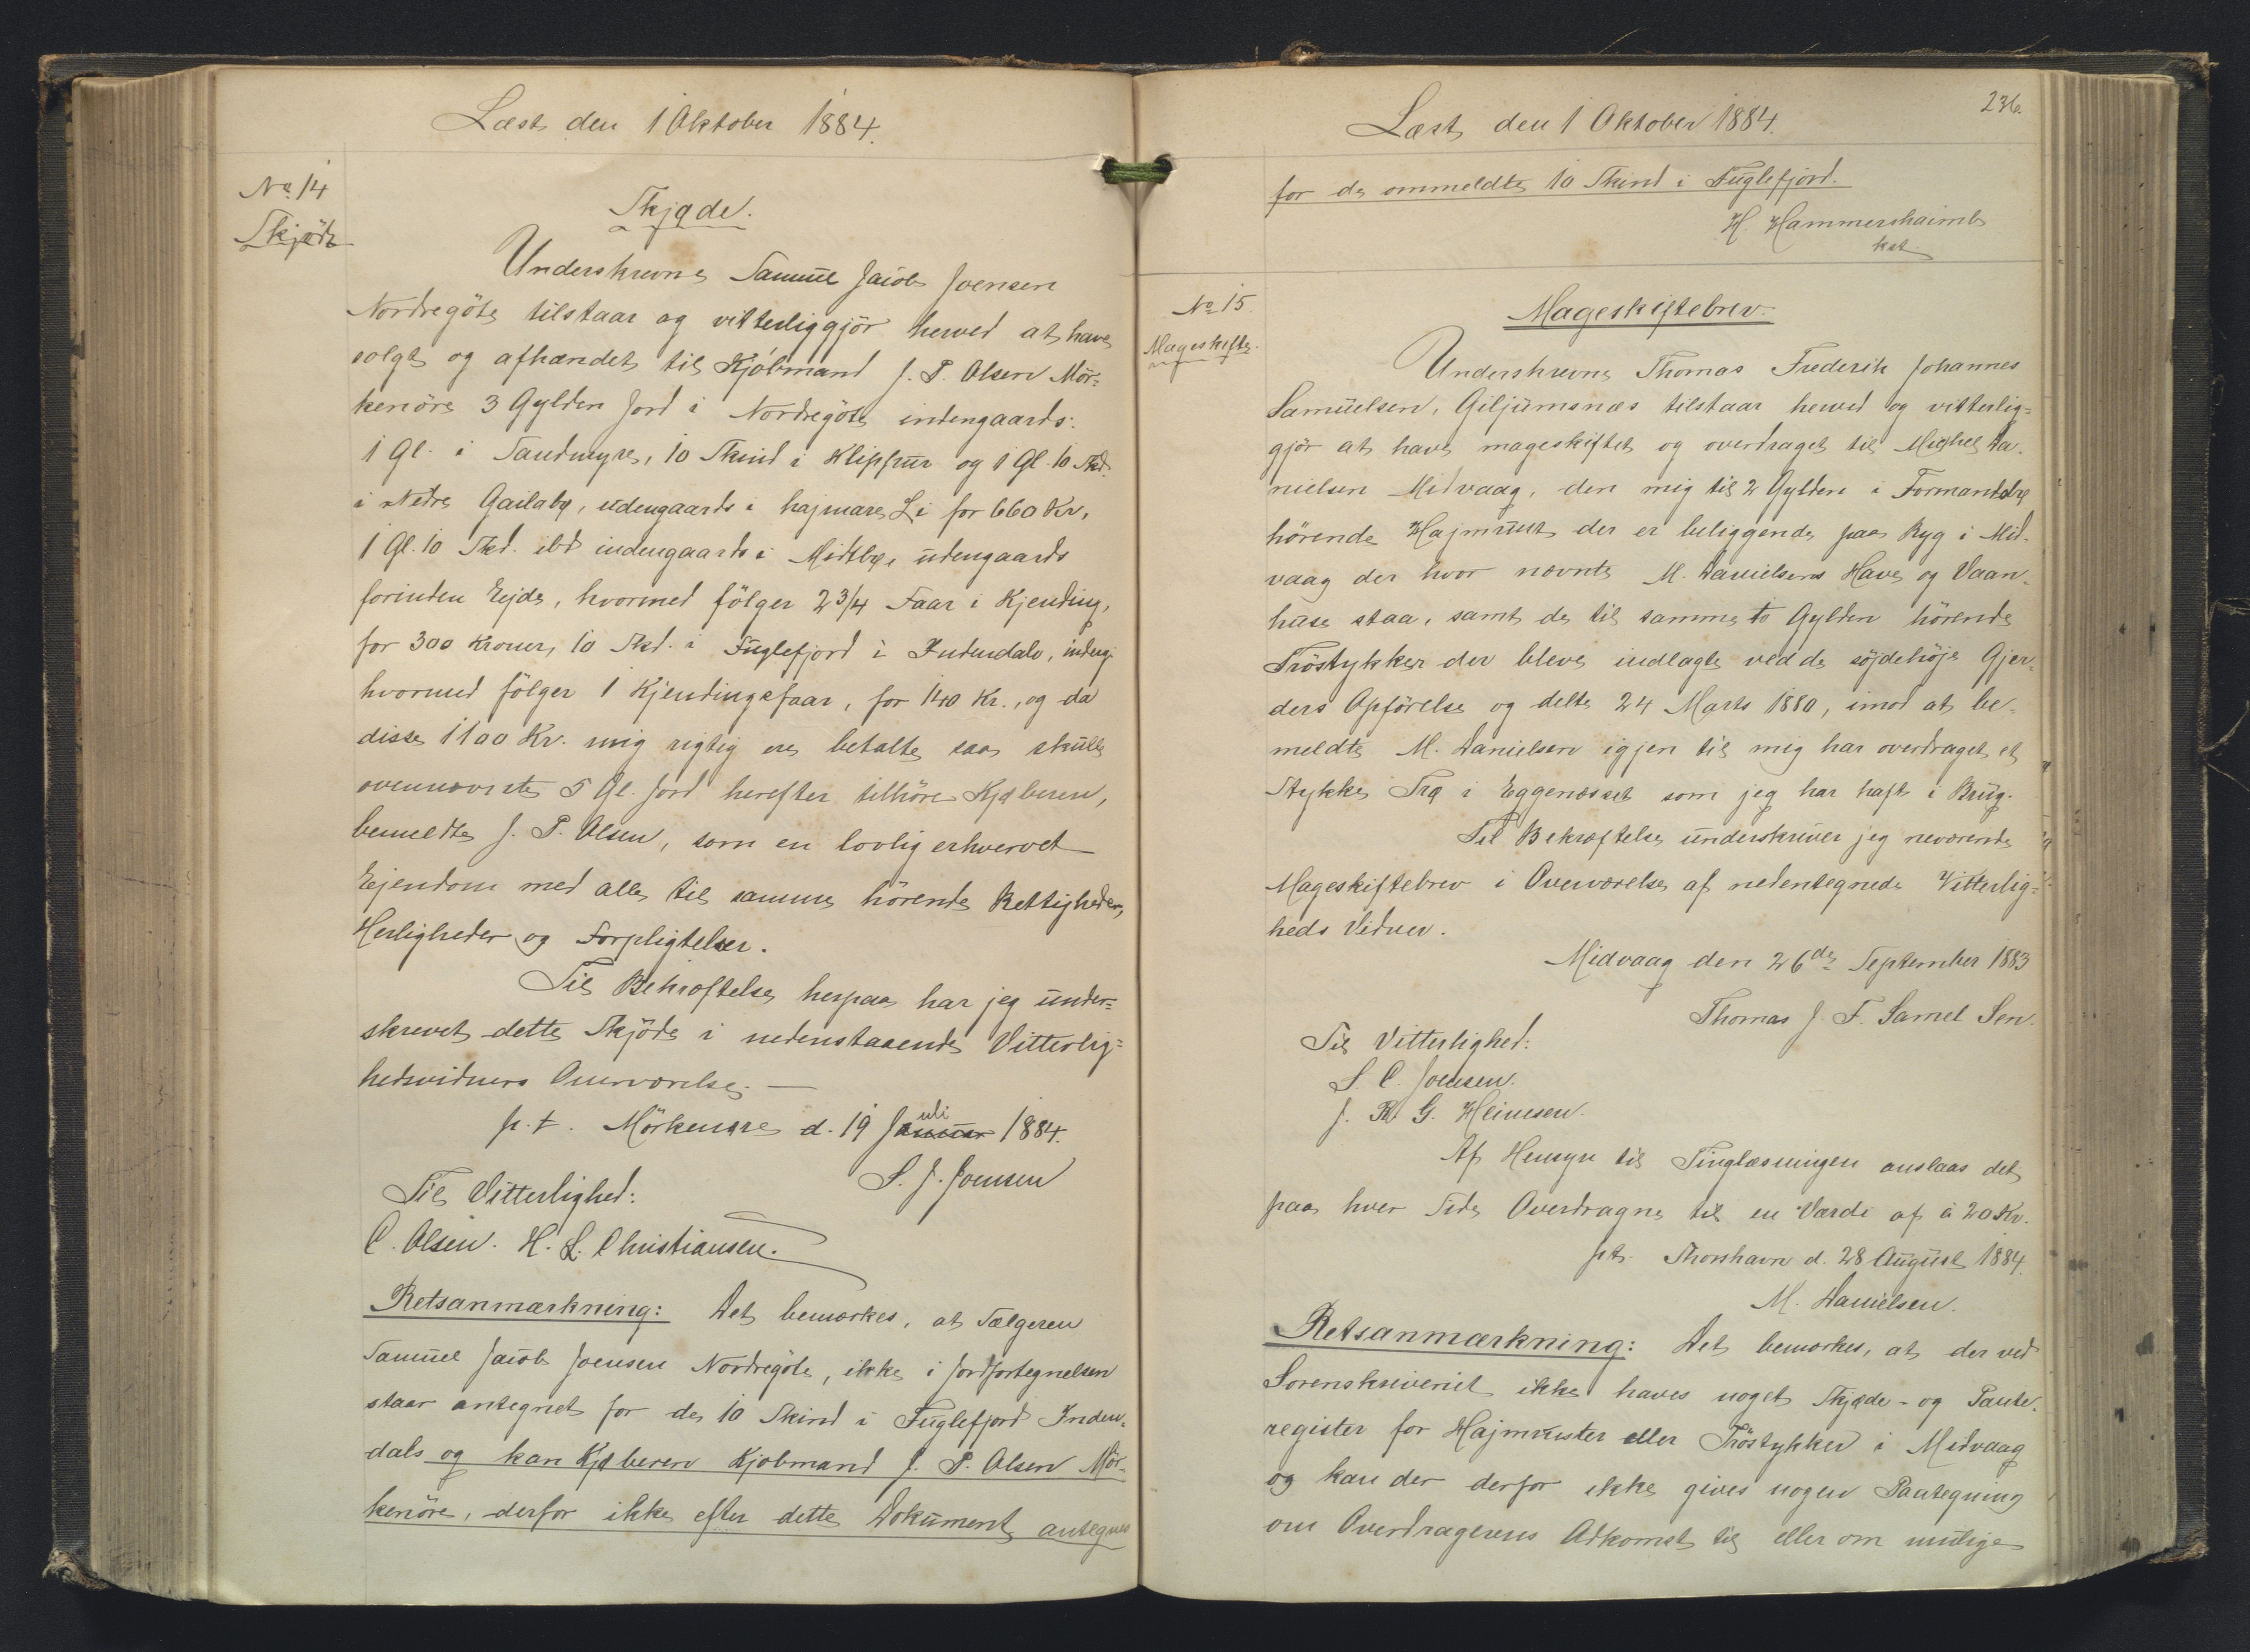 Læst den 1 Oktober 1884.
No 14
Skjøde
Skjøde.
Underskrevne Samuel Jacob Joensen
Nordregöte tilstaar og vitterliggjör herved at have
solgt og afhændet til Kjöbmand J. P. Olsen Mör-
kenöre 3 Gylden Jord i Nordregöte indengaards:
1 Gl. i Sandmyre, 10 Skind i Klipfrur og 1 Gl. 10 Skd.
i Nedre Gailabø, udengaards i hajmare Li for 660 Kr,
1 Gl. 10 Skd. ibd indengaards i Midtbø, udengaards
forinden Ejde, hvormed fölger 2 3/4 Faar i Kjending,
for 300 Kroner, 10 Skd. i Fuglefjord i Indendals, indeng.
hvormed fölger 1 Kjendingsfaar, for 140 Kr., og da
disse 1100 Kr. mig rigtig ere betalte saa skulle
ovennævnte 5 Gl. Jord herefter tilhöre Kjøberen,
bemeldte J. P. Olsen, som en lovlig erhvervet
Ejendom med alle til samme hörende Rettigheder,
Herligheder og Forpligtelser.
Til Bekræftelse herpaa har jeg under-
skrevet dette Skjöde i nedenstaaende Vitterlig-
hedsvidners Overværelse. —
p. t. Mörkenøre d. 19 Juli 1884.
S. J. Joensen
Til Vitterlighed:
C. Olsen. H. L. Christiansen.
Retsanmærkning: Det bemærkes, at Sælgeren
Samuel Jacob Joensen Nordregöte, ikke i Jordfortegnelsen
staar antegnet for de 10 Skind i Fuglefjord Inden-
dals og kan Kjøberen Kjöbmand J. P. Olsen Mör-
kenöre, derfor ikke efter dette Dokument antegnes
Læst den 1 Oktober 1884.
236.
for de ommeldte 10 Skind i Fuglefjord.
H. Hammershaimb
kst.
No 15.
Mageskifte.
Mageskiftebrev.
Underskrevne Thomas Frederik Johannes
Samuelsen, Giljumsnæs tilstaar herved og vitterlig-
gjör at have mageskiftet og overdraget til Michel Da-
nielsen Midvaag, den mig til 2 Gylden i Formandolø
hörende Hajmrust der er beliggende paa Ryg i Mid-
vaag der hvor nævnte M. Danielsens Have og Vaan-
huse staa, samt de til samme to Gylden hörende
Tröstykker der bleve indlagte ved de söjdehöje Gjer-
ders Opförelse og delte 24 Marts 1880, imod at be-
meldte M. Danielsen igjen til mig har overdraget et
Stykke Trø i Eggenæsset som jeg har haft i Brug.
Til Bekræftelse underskriver jeg nærværende
Mageskiftebrev i Overværelse af nedentegnede Vitterlig-
heds Vidner.
Midvaag den 26de September 1883
Thomas J. F. Samel Sen.
Til Vitterlighed:
S. C. Joensen.
J. R. G. Heinesen.
Af Hensyn til Tinglæsningen anslaas det
paa hver Side Overdragne til en Værdi af à 20 Kr.
pt. Thorshavn d. 28 August 1884.
M. Danielsen.
Retsanmærkning: Det bemærkes, at der ved
Sorenskriveriet ikke haves noget Skjøde- og Pante-
register for Hajmruster eller Tröstykker i Midvaag
og kan der derfor ikke gives nogen Paategning
om Overdragerens Adkomst til eller om mulige